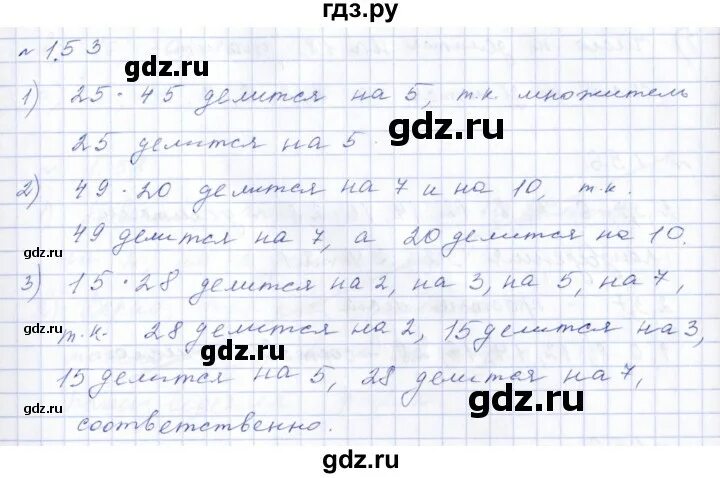 гдз.ру
№ 153
gdz.ru
1) 25 · 45 делится на 5, т.к. множитель
gdz.ru
25 делится на 5.
gdz.ru
2) 49 · 20 делится на 7 и на 10, т.к.
49 делится на 7, а 20 делится на 10.
gdz.ru
gdz.ru
3) 15 · 28 делится на 2, на 3, на 5, на 7,
т.к. 28 делится на 2, 15 делится на 3,
gdz.ru
15 делится на 5, 28 делится на 7,
gdz.ru
gdz.ru
соответственно.
gdz.ru